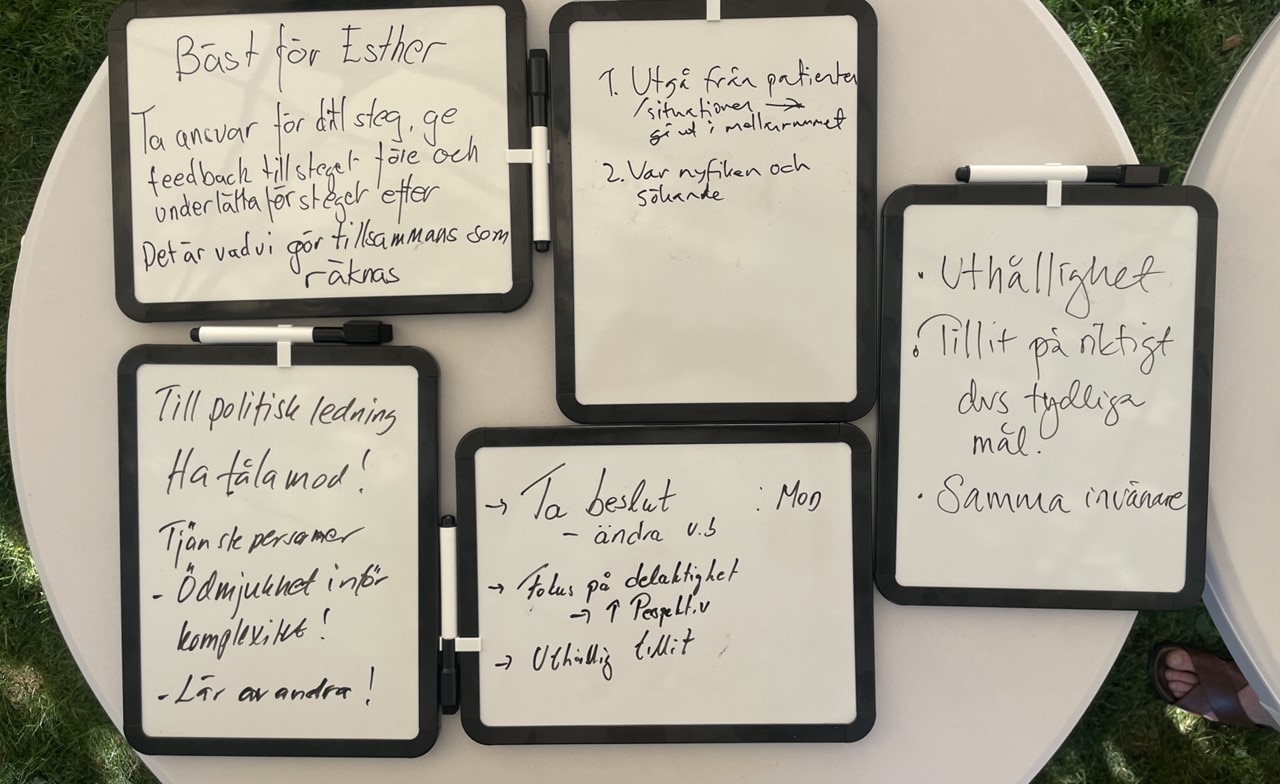 Bäst för Esther
Ta ansvar för ditt steg, ge
feedback till steget före och
underlätta för steget efter
Det är vad vi gör tillsammans som
räknas
1. Utgå från patienten
/situationen →
gå ut i mellanrummet
2. Var nyfiken och
sökande
• Uthållighet
• Tillit på riktigt
dvs tydliga
mål.
• Samma invånare
Till politisk ledning
Ha tålamod!
Tjänstepersoner
- Ödmjukhet inför
komplexitet!
- Lär av andra!
→ Ta beslut : Mod
- ändra v.b
→ Fokus på delaktighet
→ ↑ Perspektiv
→ Uthållig tillit